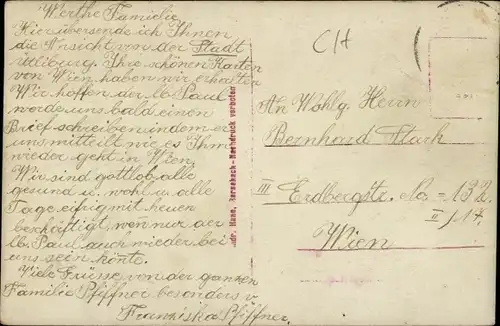 Werthe Familie
Hier übersende ich Ihnen
die Ansicht von der Stadt
Ihre schönen Karten
von Wien haben wir erhalten
Wir hoffen der lb Paul
werde uns bald einen
Brief schreiben indem er
uns mitteilt wie es Ihm
wieder geht in Wien.
Wir sind gottlob alle
gesund u. wohl u. alle
Tage eifrig mit heuen
beschäftigt, wen nur der
lb. Paul auch wieder bei
uns sein könte.
Viele Grüsse von der ganzen
Familie Pfiffner besonders v
Franziska Pfiffner.
Nachdruck verboten
CH
An Wohlg. Herrn
Bernhard Stark
III Erdbergstr. No = 132
II / 17.
Wien